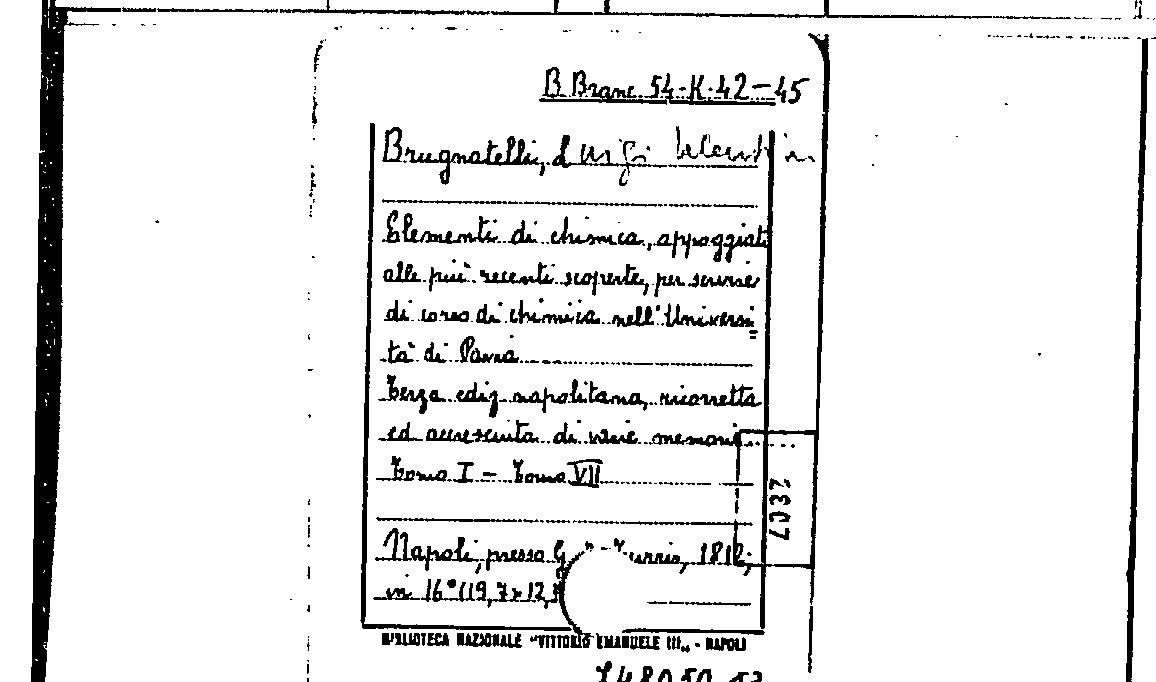 B. Branc. 54-K-42-45
Brugnatelli, Luigi
Elementi di chimica, appoggiati
alle più recenti scoperte, per servire
di corso di chimica nell'Universi
tà di Pavia
Terza ediz. napolitana, ricorretta
ed accresciuta di varie memorie
Tomo I - Tomo VII
Napoli, presso G. 1812;
in 16° (19,7x12,
BIBLIOTECA NAZIONALE "VITTORIO EMANUELE III" - NAPOLI
2307